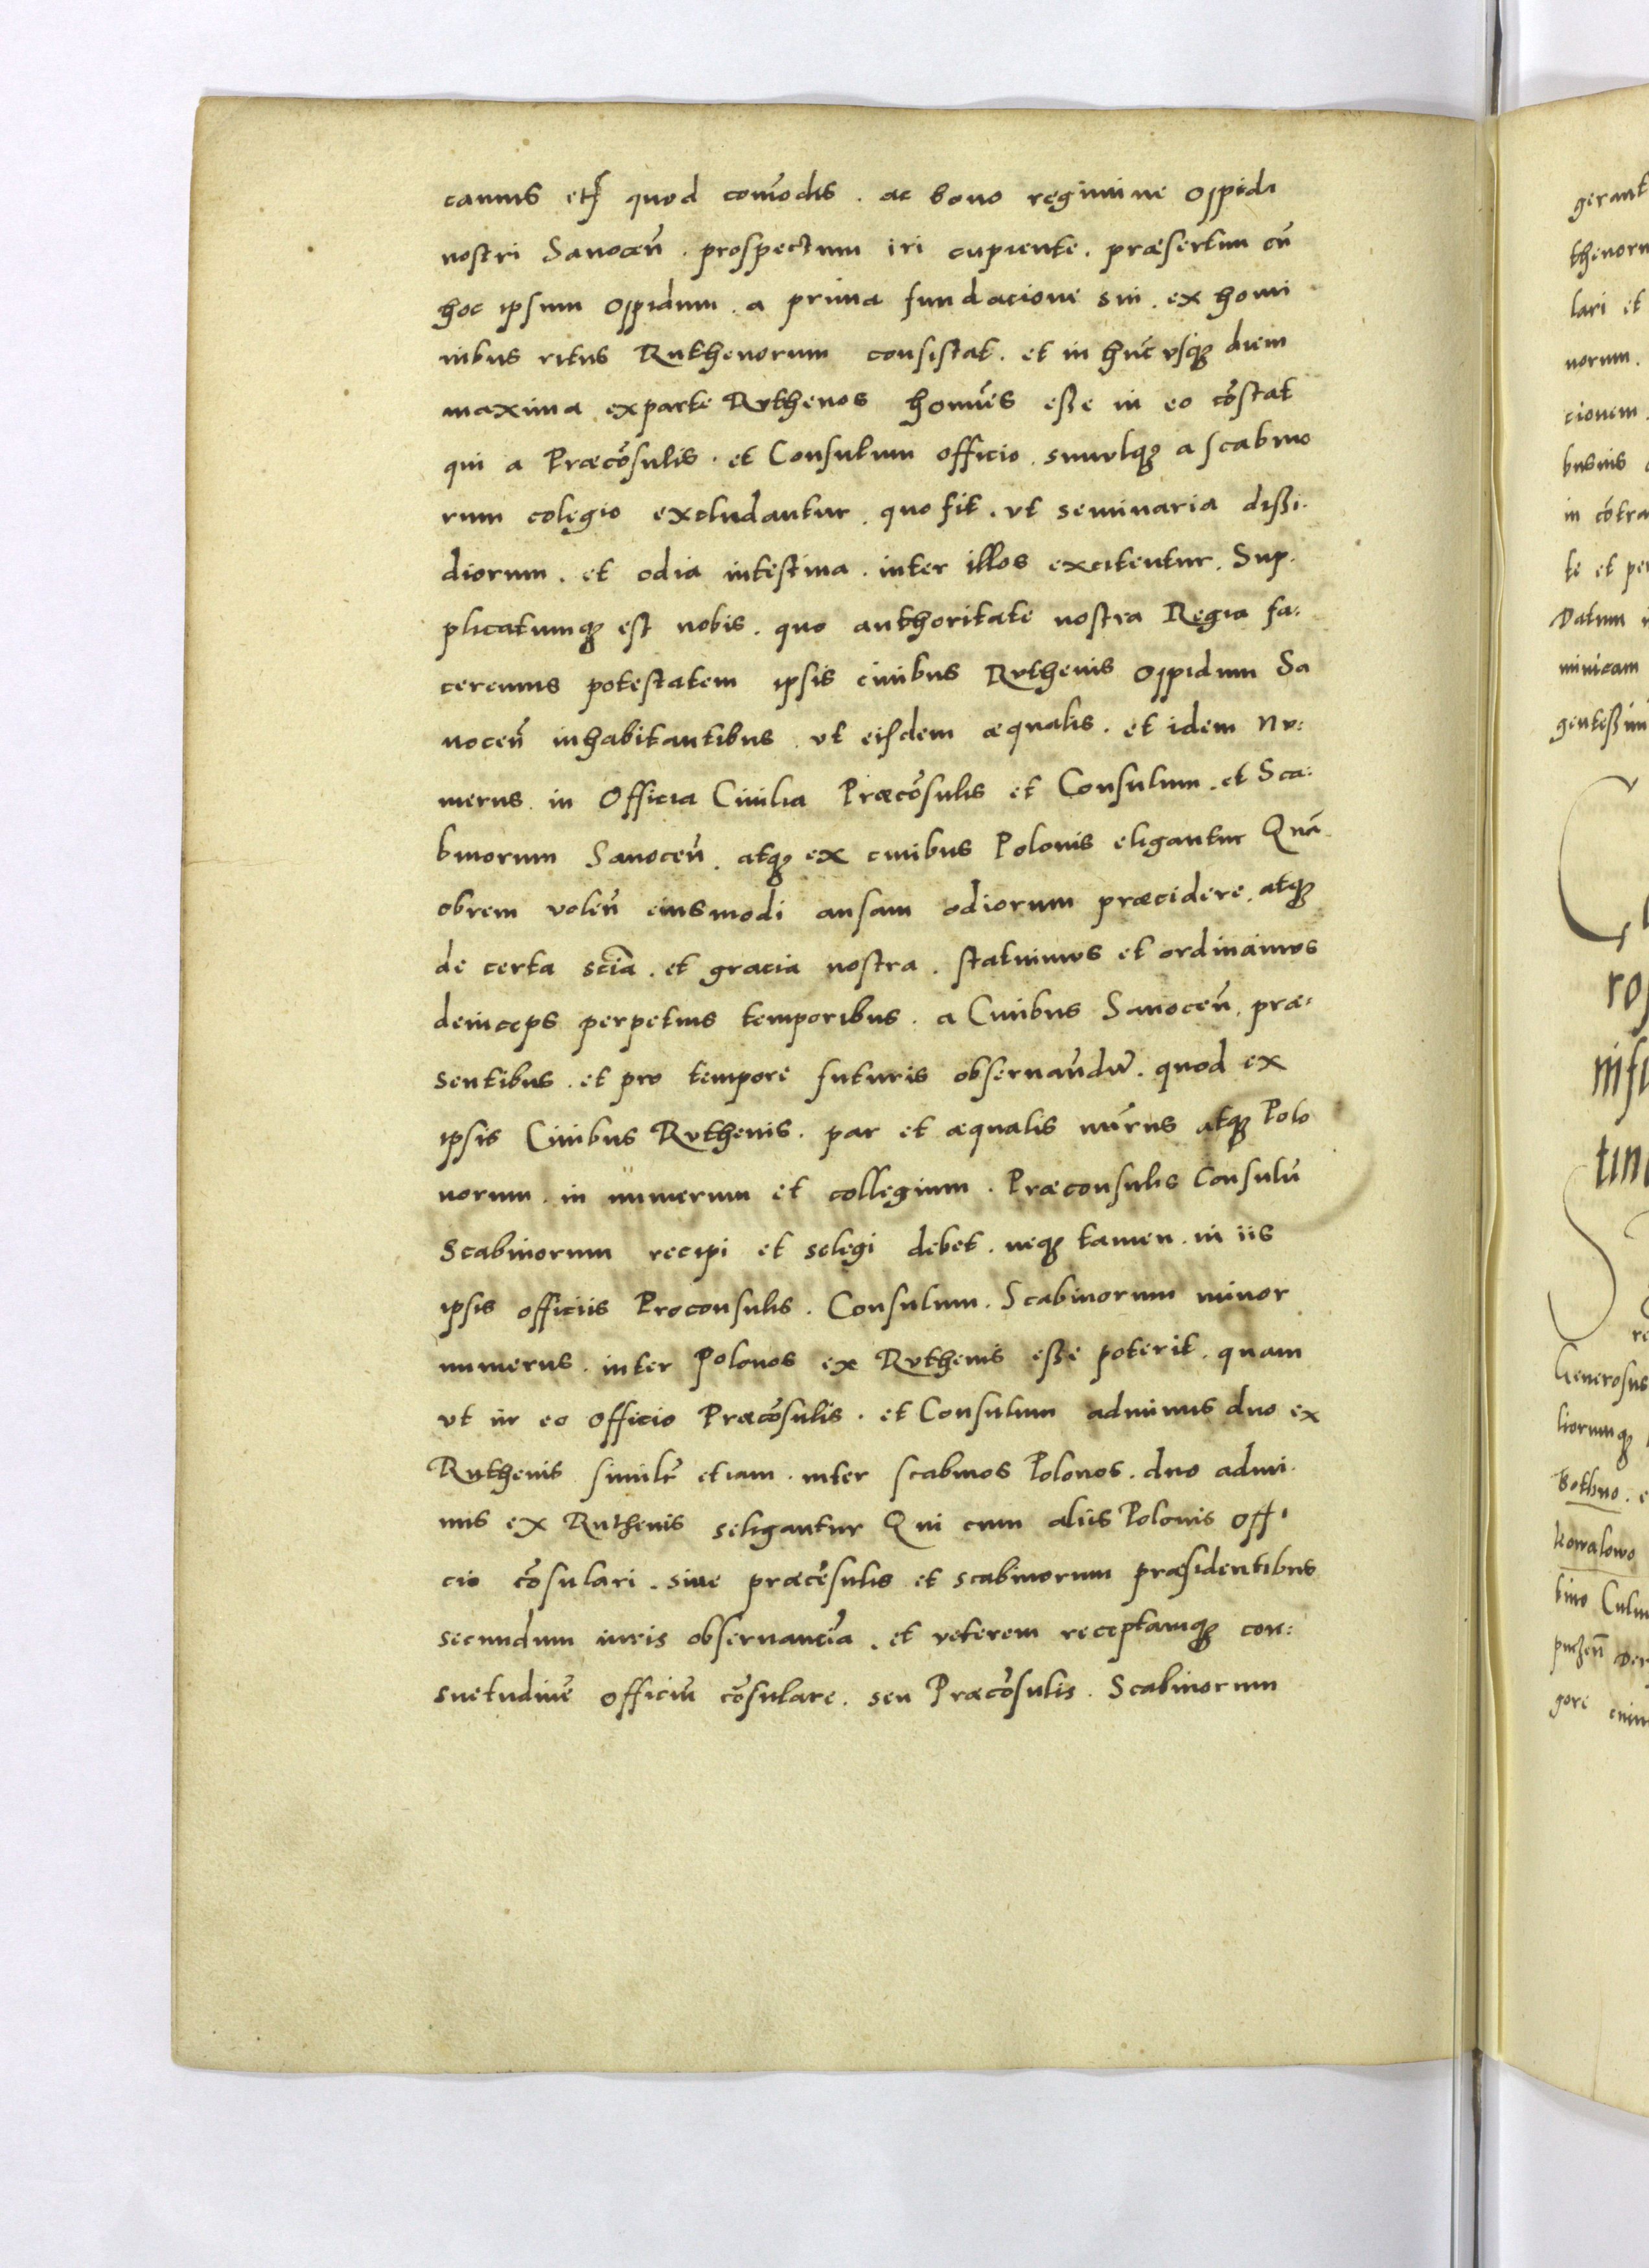 camus etc quod com̄odis . ac bono regimine oppidi
nostri Sanoceñ . prospectum iri cupiente . præsertim cū
hoc ipsum oppidum . a prima fundacione sui . ex homi
nibus ritus Ruthenorum consistat . et in hūc vsq₃ diem
maxima ex parte Rvthenos homīes eſſe in eo cōstat
qui a Præcōsulis . et Consulum officio . simvlq₃ a scabino
rum colegio excludantur . quo fit . vt seminaria dißi.
diorum . et odia intestina . inter illos excitentur . Sup.
plicatumq₃ est nobis . quo authoritate nostra Regia fa:
ceremus potestatem ipsis ciuibus Rvthenis oppidum Sa
noceñ inhabitantibus . vt eisdem æqualis . et idem nv:
merus in Officia Ciuilia Præcōsulis et Consulum . et Sca:
binorum Sanoceñ . atq₃ ex ciuibus Polonis eligantur Quā
obrem voleñ eiusmodi ansam odiorum præcidere . atq₃
de certa scīa . et gracia nostra . statuimvs et ordinamvs
deinceps perpetuis temporibus . a Ciuibus Sanoceñ . præ:
sentibus . et pro tempore futuris obseruandū . quod ex
ipsis Ciuibus Rvthenis . par et æqualis nūrus atq₃ Polo
norum . in numerum et collegium . Præconsulis Consulū
Scabinorum recipi et selegi debet . neq₃ tamen . in iis
ipsis officiis Proconsulis . Consulum . Scabinorum minor
numerus . inter Polonos ex Rvthenis eße poterit . quam
vt in eo officio Præcōsulis . et Consulum adminus duo ex
Ruthenis similr̄ etiam . inter scabinos Polonos . duo admi.
nus ex Ruthenis seligantur Qui cum aliis Polonis offi
cio cōsulari . siue præcōsulis et scabinorum præsidentibus
secundum iuris obseruanciā . et veterem receptamq₃ con:
suetudinē officiū cōsulare . seu Præcōsulis . Scabinorum
gerant
lari et
norum .
cionem .
te et per
Datum
ro
tin
Generosus
liorumq₃
Kowalowo
gore